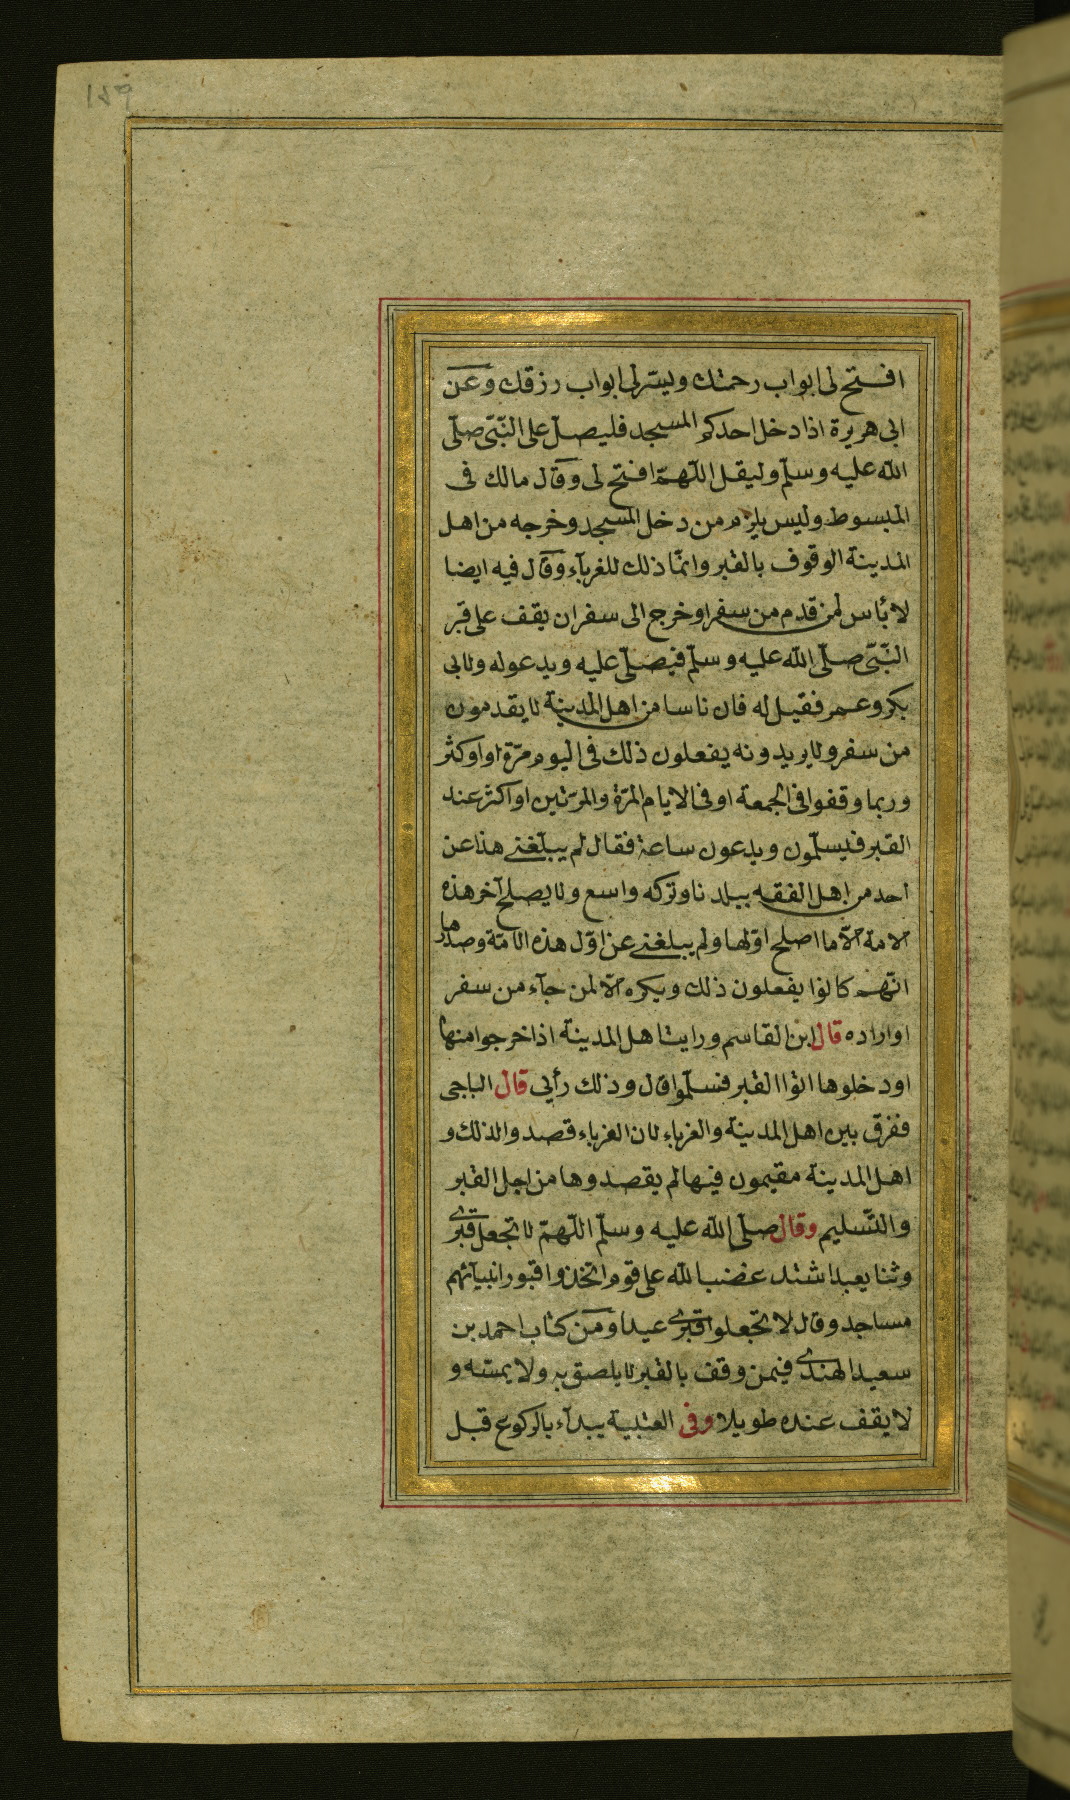 ١٨٩
افتح لى ابواب رحمتك ويسّر لى ابواب رزقك وعن
ابى هريرة اذا دخل احدكم المسجد فليصلّ على النّبىّ صلّى
اللّه عليه وسلّم وليقل اللّهمّ افتح لى وقال مالك فى
المبسوط وليس يلزم من دخل المسجد وخرجه من اهل
المدينة الوقوف بالقبر وانّما ذلك للغربآء وقال فيه ايضا
لا بأس لمن قدم من سفر او خرج الى سفر ان يقف على قبر
النّبىّ صلّى اللّه عليه وسلّم فيصلّى عليه ويدعو له ولابى
بكر وعمر فقيل له فان ناسا من اهل المدينة لا يقدمون
من سفر ولا يريدونه يفعلون ذلك فى اليوم مرّة او اوكثر
وربما وقفوا فى الجمعة او فى الايام المرّة والمرّتين او اكثر عند
القبر فيسلّمون ويدعون ساعة فقال لم يبلّغنى هذا عن
احد من اهل الفقه ببلدنا وتركه واسع ولا يصلح آخر هذه
الامة الّا ما اصلح اوّلها ولم يبلغنى عن اوّل هذه الامّة وصدرها
انّهم كانوا يفعلون ذلك ويكره الّا لمن جآء من سفر
او اراده قال ابن القاسم ورايت اهل المدينة اذا خرجوا منها
او دخلوها اتوا القبر فسلّموا قال وذلك رأيى قال الباجى
ففرق بين اهل المدينة والغرباء لان الغرباء قصدوا لذلك و
اهل المدينة مقيمون فيها لم يقصدوها من اجل القبر
والتّسليم وقال صلّى اللّه عليه وسلّم اللّهمّ لا تجعل قبرى
وثنا يعبد اشتد غضب اللّه على قوم اتخذوا قبور انبيآئهم
مساجد وقال لا تجعلوا قبرى عيدا ومن كتاب احمد بن
سعيد الهندى فيمن وقف بالقبر لا يلصق به ولا يمسّه و
لا يقف عنده طويلا وفى العتبية يبدآء بالركوع قبل